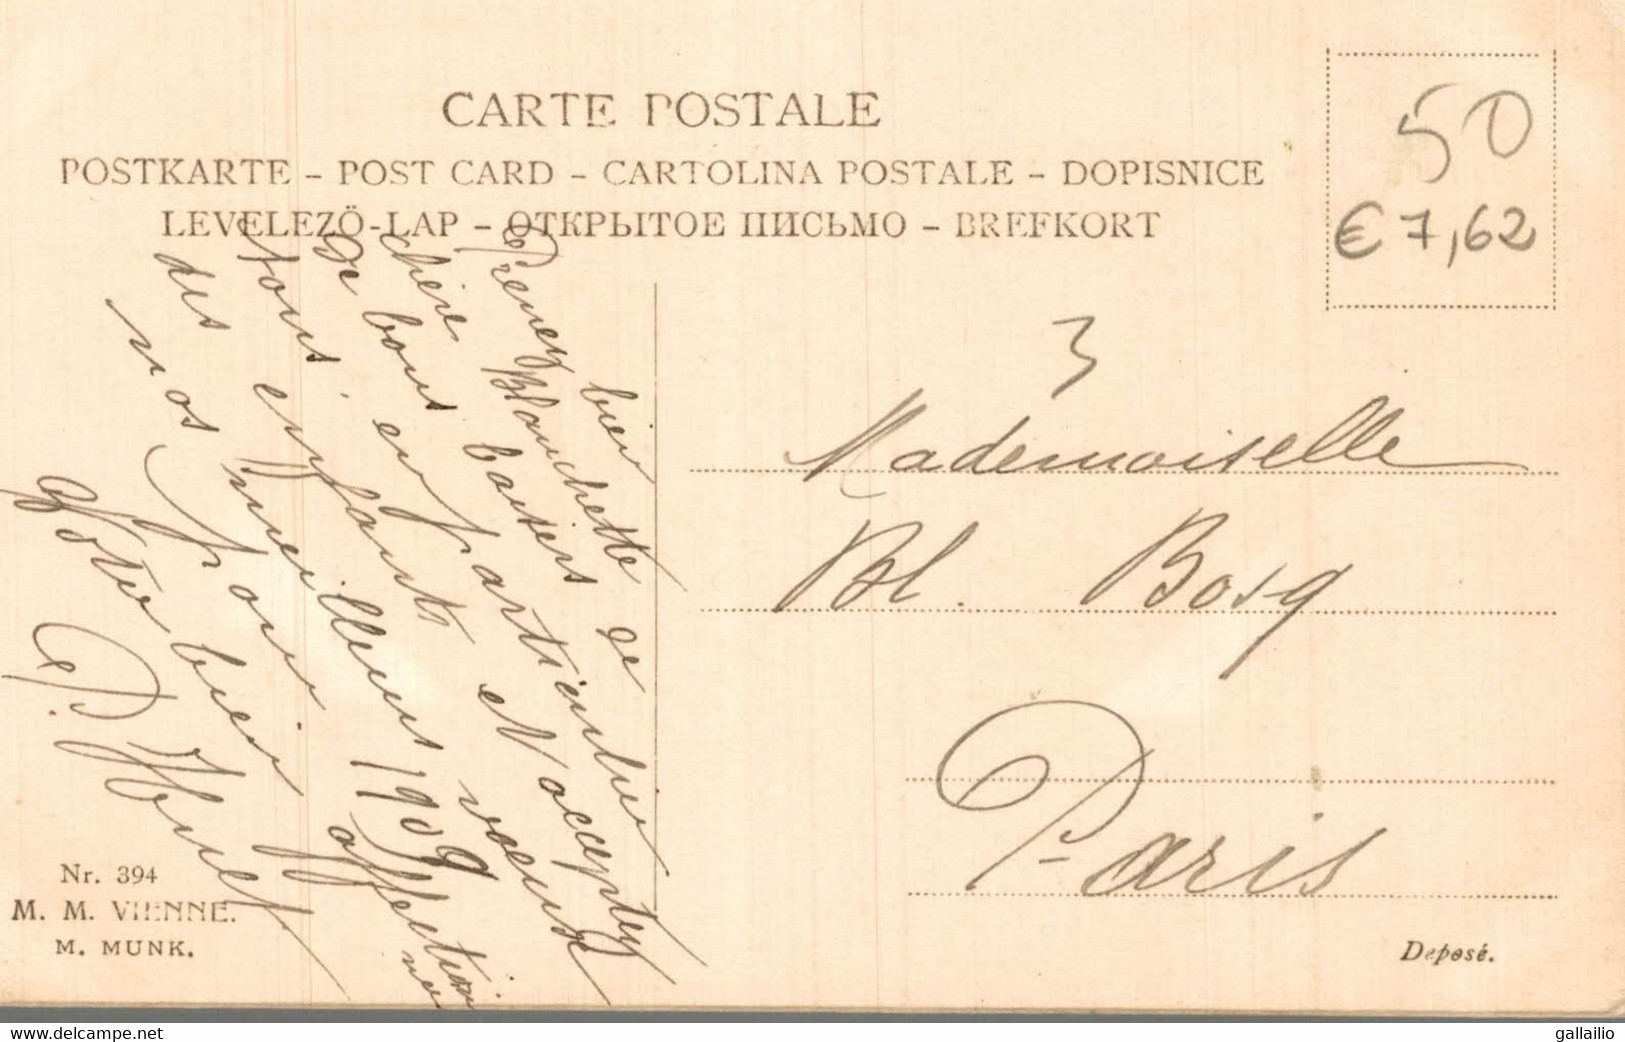 CARTE POSTALE
POSTKARTE – POST CARD – CARTOLINA POSTALE – DOPISNICE
LEVELEZÖ-LAP – ОТКРЫТОЕ ПИСЬМО – BREFKORT
50
€ 7,62
3
Mademoiselle
Bl. Bosq
Paris
Prenez bien
chère Blanchette
de bons baisers de
tous en particulier
des enfants et acceptez
nos meilleurs vœux
pour 1909
Votre bien affectionné
Nr. 394
M. M. VIENNE.
M. MUNK.
Deposé.
www.delcampe.net
gallailio